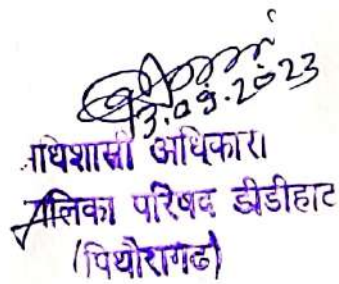 3.09.2023
ाधिशासी अधिकारी
पालिका परिषद डीडीहाट
(पिथौरागढ)